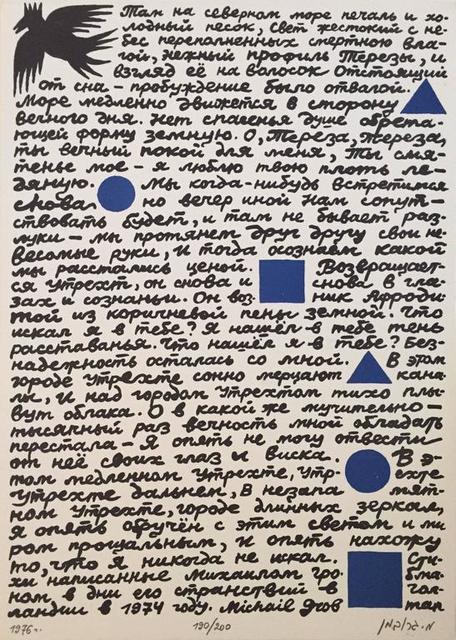 Там на северном море печаль и хо-
лодный песок, Свет жестокий с не-
бес переполненных смертною вла-
гой, Нежный профиль Терезы, и
взгляд её на волосок Отстоящий
от сна – пробуждение было отвагой.
Море медленно движется в сторону
вечного дня. Нет спасенья душе обрета-
ющей форму земную. О, Тереза, Тереза,
ты вечный покой для меня, Ты смя-
тенье моё – я люблю твою плоть ле-
дяную. Мы когда-нибудь встретимся
снова но вечер иной нам сопут-
ствовать будет, и там не бывает раз-
луки – мы протянем друг другу свои не-
весомые руки, И тогда осознаем какой
мы расстались ценой. Возвращает-
ся Утрехт, он снова и снова в гла-
зах и сознаньи. Он воз- ник Афроди-
той из коричневой пены земной. Что
искал я в тебе? Я нашёл в тебе тень
расставанья. Что нашёл я в тебе? Без-
надежность осталась со мной. В этом
городе Утрехте сонно мерцают кана-
лы, И над городом Утрехтом тихо плы-
вут облака. О в какой же мучительно –
тысячный раз вечность мной обладать
перестала – Я опять не могу отвести
от неё своих глаз и виска. В э-
том медленном Утрехте, Утр- ехте
Утрехте дальнем, В незапа мят-
ном Утрехте, городе длинных зеркал,
Я опять обручён с этим светом и ми
ром прощальным, И опять нахожу
то, что я никогда не искал. Сти-
хи написанные Михаилом Гро- бма-
ном, в дни его странствий в гол-
ландии в 1974 году. Michail Grob man
1976 г. 190/200 מ. גרובמן